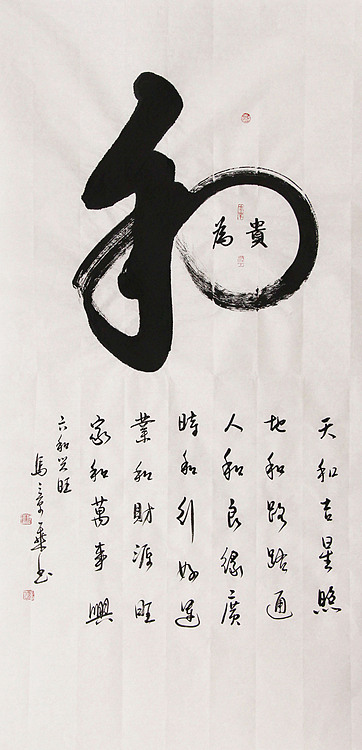 和
為貴
天和吉星照
地和路路通
人和良緣廣
時和行好運
業和財源旺
家和萬事興
六和兴旺
馬章书